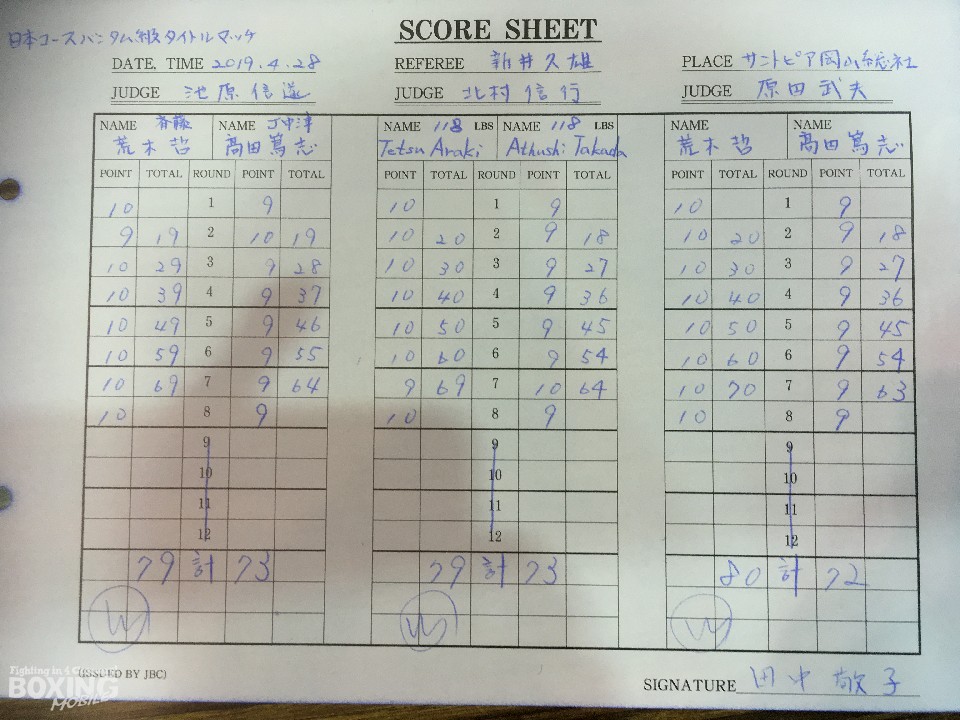 SCORE SHEET
日本ユースバンタム級タイトルマッチ
DATE, TIME 2019.4.28 REFEREE 新井久雄 PLACE サントピア岡山総社
JUDGE 池原信遂 JUDGE 北村信行 JUDGE 原田武夫
NAME 斉藤 NAME J中津 NAME 118 LBS NAME 118 LBS NAME NAME
荒木哲 高田篤志 Tetsu Araki Athushi Takada 荒木哲 高田篤志
POINT TOTAL ROUND POINT TOTAL POINT TOTAL ROUND POINT TOTAL POINT TOTAL ROUND POINT TOTAL
10 1 9 10 1 9 10 1 9
9 19 2 10 19 10 20 2 9 18 10 20 2 9 18
10 29 3 9 28 10 30 3 9 27 10 30 3 9 27
10 39 4 9 37 10 40 4 9 36 10 40 4 9 36
10 49 5 9 46 10 50 5 9 45 10 50 5 9 45
10 59 6 9 55 10 60 6 9 54 10 60 6 9 54
10 69 7 9 64 9 69 7 10 64 10 70 7 9 63
10 8 9 10 8 9 10 8 9
9 9 9
10 10 10
11 11 11
12 12 12
79 計 73 79 計 73 80 計 72
W W W
(ISSUED BY JBC)
SIGNATURE 田中敬子
Fighting in 4 Channel
BOXING
MOBILE